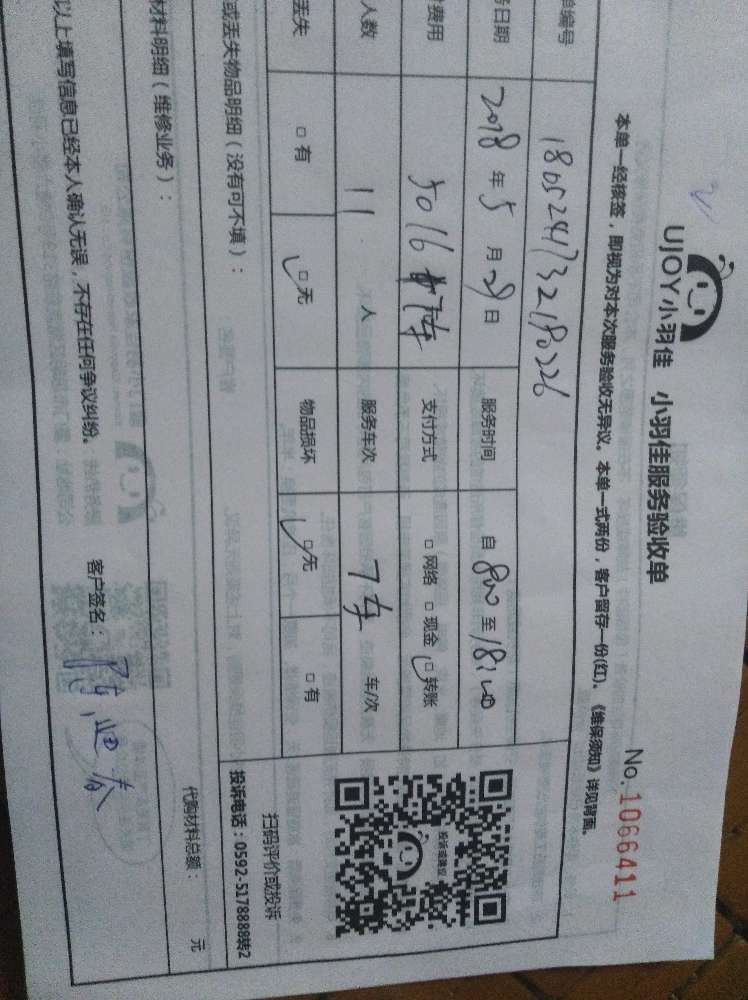 UJOY小羽佳 小羽佳服务验收单
No. 1066411
本单一经核签，即视为对本次服务验收无异议。本单一式两份，客户留存一份(红)。《维保须知》详见背面。
单编号 1805241732180226
务日期 2018 年 5 月 28 日 服务时间 自 800 至 18:00
费用 5016 支付方式 □网络 □现金 □转账
人数 11 人 服务车次 7车 车/次
丢失 □有 □无 物品损坏 □无 □有
投诉或建议
扫码评价或投诉
投诉电话：0592-5178888转2
或丢失物品明细（没有可不填）：
材料明细（维修业务）：
代购材料总额： 元
以上填写信息已经本人确认无误，不存在任何争议纠纷。 客户签名：